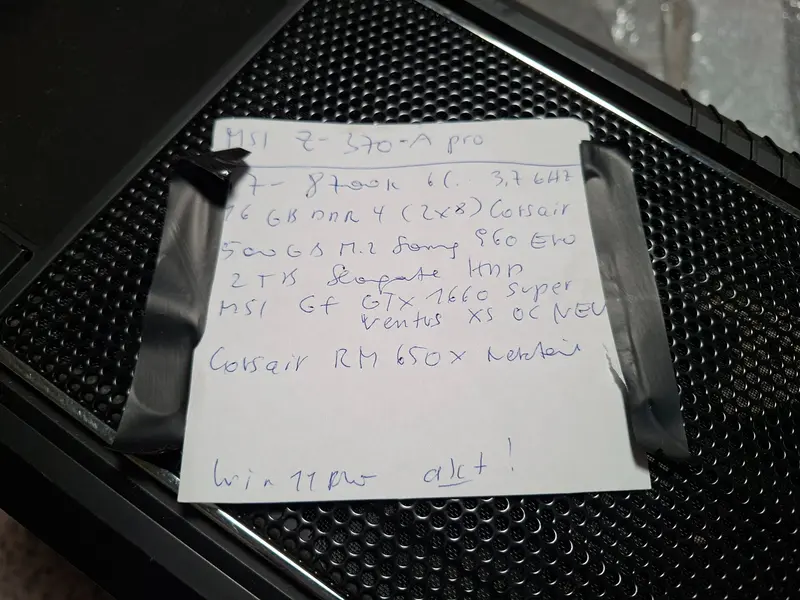 MSI Z-370-A pro
7-8700K 6C. 3.7 GHZ
16 GB DDR 4 (2x8) Corsair
500 GB M.2 Samsg 960 Evo
2 TB Seagate HDD
MSI Gf GTX 1660 Super
Ventus XS OC NEU
Corsair RM 650x Netzteil
Win 11 Pro akt!